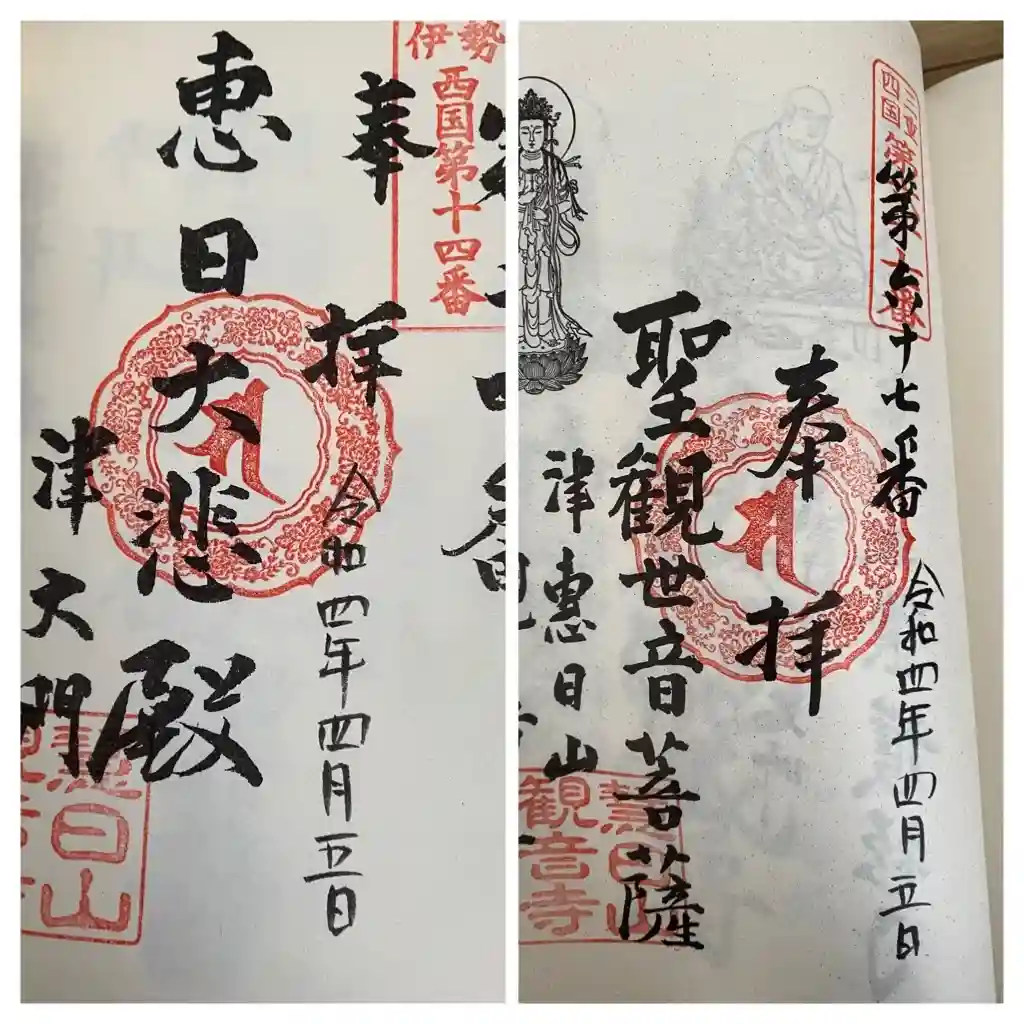 伊勢
西国第十四番
奉拝
令和四年四月五日
恵日大悲殿
津大門
慧日山
三重
四国第
番
第六十七番
令和四年四月五日
奉拝
聖観世音菩薩
津惠日山
慧日山
観音寺